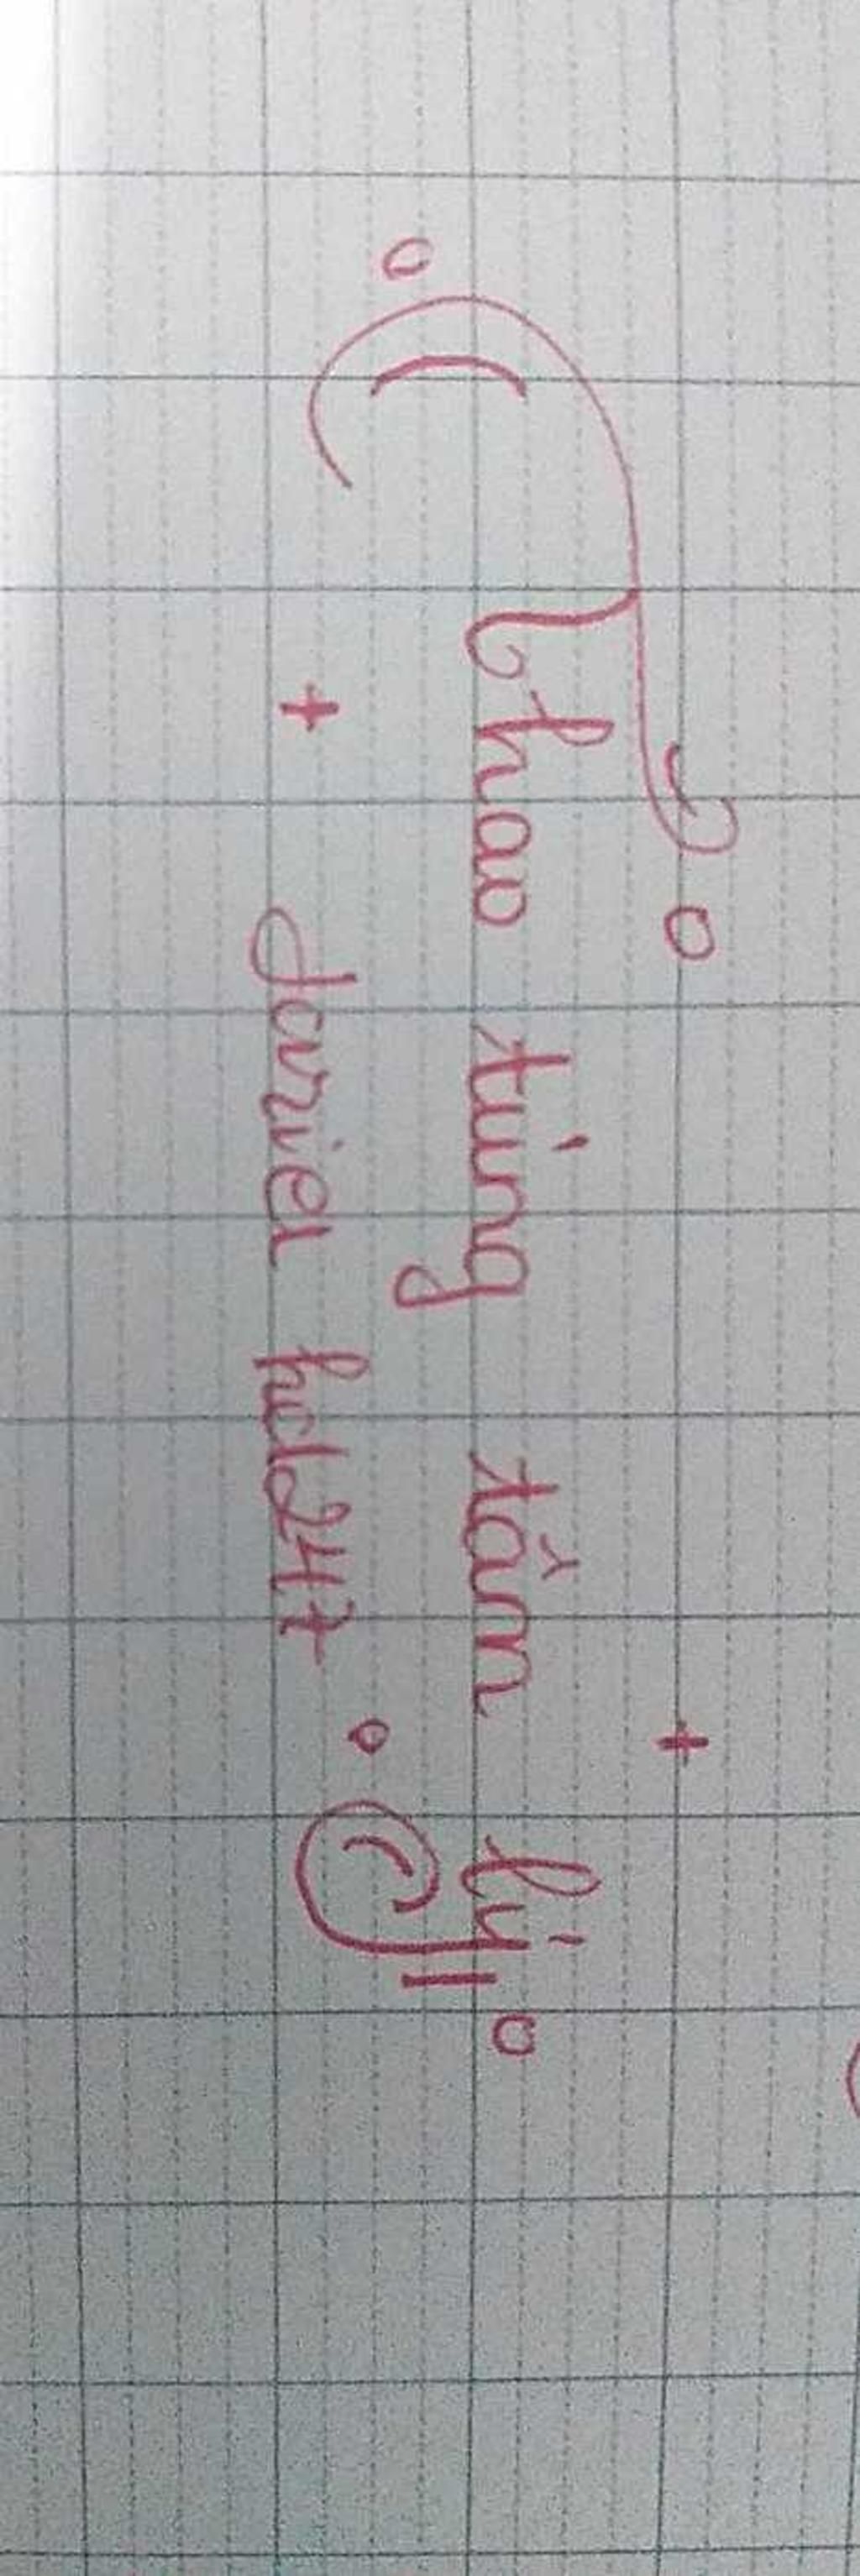 Thao túng tâm lý
Jarviel hd247